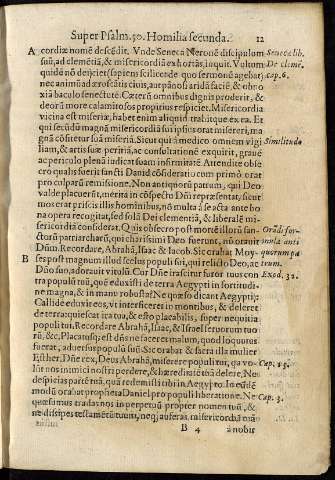 Super Psalm. 50. Homilia secunda. 12
A cordiæ nomē descēdit. Vnde Seneca Neronē discipulum
suū, ad clemētiā, & misericordiā exhortās, inquit. Vultum
quidē nō deijciet sapiens
nec animū
xia baculo senectutē. Cæterū omnibus dignis proderit, &
deorū more calamitosos propitius respiciet. Misericordia
vicina est miseriæ, habet enim aliquid trahitque ex ea. Et
qui secūdū magnā misericordiā sui ipsius orat misereri, ma
gnā cōsitetur suā miseriā. Sicut qui à medico omnem vigi
liam, & artis suæ peritiā, ac consultationē exquirit, graue
ac periculo plenā iudicat suam infirmitatē Attendite obse
cro qualis fuerit sancti Dauid cōsideratio cum primò orat
pro culparū remissione. Non antiquorū patrum, qui Deo
valde placuerūt, merita in cōspectu Dñi repræsentat, sicut
mos erat priscis illis hominibus, nō multa à se acta ante bo
na opera recogitat, sed solā Dei clementiā, & liberalē mi-
sericordiā considerat. Qui obsecro post morē illorū san-
ctorū patriarcharū, qui charissimi Deo fuerunt, nō orauit
Dūm. Recordare, Abrahā, Isaac & Iacob. Sic orabat Moy-
B ses post magnum illud scelus populi sui, qui relicto Deo,
Dño suo, adorauit vitulū. Cur Dñe irascitur furor tuus con
tra populū tuū, quē eduxisti de terra Aegypti in fortitudi-
ne magna, & in manu robusta? Ne quæso dicant Aegyptij:
Callidè eduxit eos, vt interficeret in montibus, & deleret
de terra: quiescat ira tua, & esto placabilis, super nequitia
populi tui. Recordare Abrahā, Isaac, & Israel seruorum tuo
rū, &c. Placatusq; est dñs ne faceret malum, quod loquutus
fuerat, aduersus populū suū. Sic orabat & sacra illa mulier
Esther. Dñe rex, Deus Abrahā, miserere populi tui, qa vo-
lūt nos inimici nostri perdere, & hæreditatē tuā delere. Ne
despicias partē tuā, quā redemisti tibi in Aegypto. In eūdē
modū orabat propheta Daniel pro populi liberatione. Ne
quæsumus tradas nos in perpetuū propter nomen tuū, &
ne dissipes testamētū tuum, neq; auferas misericordiā tuā
B 4 à nobis
Seneca lib.
De clemē.
cap. 6.
Similitudo
Exod. 32.
Cap. 13.
Cap. 3.